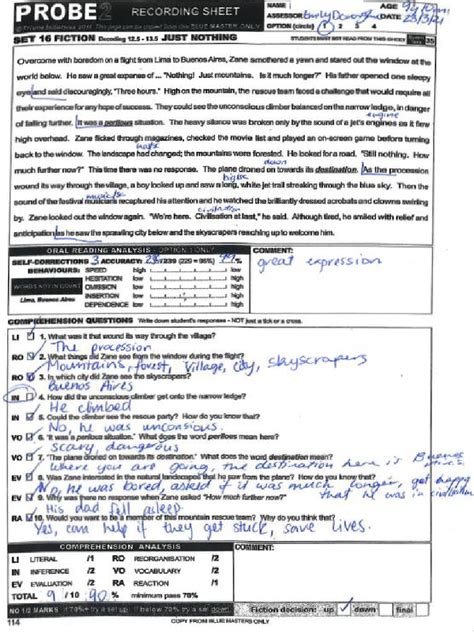 PROBE 2 RECORDING SHEET
NAME
AGE 9y 10m
ASSESSOR Emily
DATE 23/3/21
OPTION (circle) 1 2 3 4
SET 16 FICTION Decoding 12.5 - 13.5 JUST NOTHING
STUDENTS MUST NOT READ FROM THIS SHEET
Overcome with boredom on a flight from Lima to Buenos Aires, Zane smothered a yawn and stared out the window at the
world below. He saw a great expanse of ... "Nothing! Just mountains. Is it much longer?" His father opened one sleepy
eye and said discouragingly, "Three hours." High on the mountain, the rescue team faced a challenge that would require all
their experience for any hope of success. They could see the unconscious climber balanced on the narrow ledge, in danger
of falling further. It was a perilous situation. The heavy silence was broken only by the sound of a jet's engines as it flew
engine
high overhead. Zane flicked through magazines, checked the movie list and played an on-screen game before turning
back to the window. The landscape had changed; the mountains were forested. He looked for a road. "Still nothing. How
much further now?" This time there was no response. The plane droned on towards its destination. As the procession
down
wound its way through the village, a boy looked up and saw a long, white jet trail streaking through the blue sky. Then the
sound of the festival musicians recaptured his attention and he watched the brilliantly dressed acrobats and clowns swirling
by. Zane looked out the window again. "We're here. Civilisation at last," he said. Although tired, he smiled with relief and
anticipation as he saw the sprawling city below and the skyscrapers reaching up to welcome him.
ORAL READING ANALYSIS - OPTION 1 ONLY
COMMENT:
SELF-CORRECTIONS 3 ACCURACY: /239 (229 = 96%) 99%
great expression
BEHAVIOURS: SPEED high low
HESITATION high low
WORDS NOT IN COUNT OMISSION high low
Lima, Buenos Aires INSERTION high low
DEPENDENCE low high
COMPREHENSION QUESTIONS Write down student's responses - NOT just a tick or a cross.
LI 1. What was it that wound its way through the village?
The procession
RO 2. What things did Zane see from the window during the flight?
Mountains, forest, village, city, skyscrapers
RO 3. In which city did Zane see the skyscrapers?
Buenos Aires
IN 4. How did the unconscious climber get onto the narrow ledge?
He climbed
IN 5. Could the climber see the rescue party? How do you know that?
No, he was unconsious.
VO 6. "It was a perilous situation." What does the word perilous mean here?
Scary, dangerous
VO 7. "The plane droned on towards its destination." What does the word destination mean?
Where you are going, the destination here is Buenos Aires
EV 8. Was Zane interested in the natural landscapes that he saw from the plane? How do you know that?
No, he was bored, asked if it was much longer, got happy
that he was in civilisation
EV 9. Why was there no response when Zane asked "How much further now?"
His dad fell asleep.
RA 10. Would you want to be a member of this mountain rescue team? Why do you think that?
Yes, can help if they get stuck, save lives.
COMPREHENSION ANALYSIS
COMMENT:
LI LITERAL /1 RO REORGANISATION /2
IN INFERENCE /2 VO VOCABULARY /2
EV EVALUATION /2 RA REACTION /1
TOTAL 9 / 10 90 % minimum pass 70%
NO 1/2 MARKS If 70%+ try a set up If below 70% try a set down
Fiction decision: up down final
114
COPY FROM BLUE MASTERS ONLY